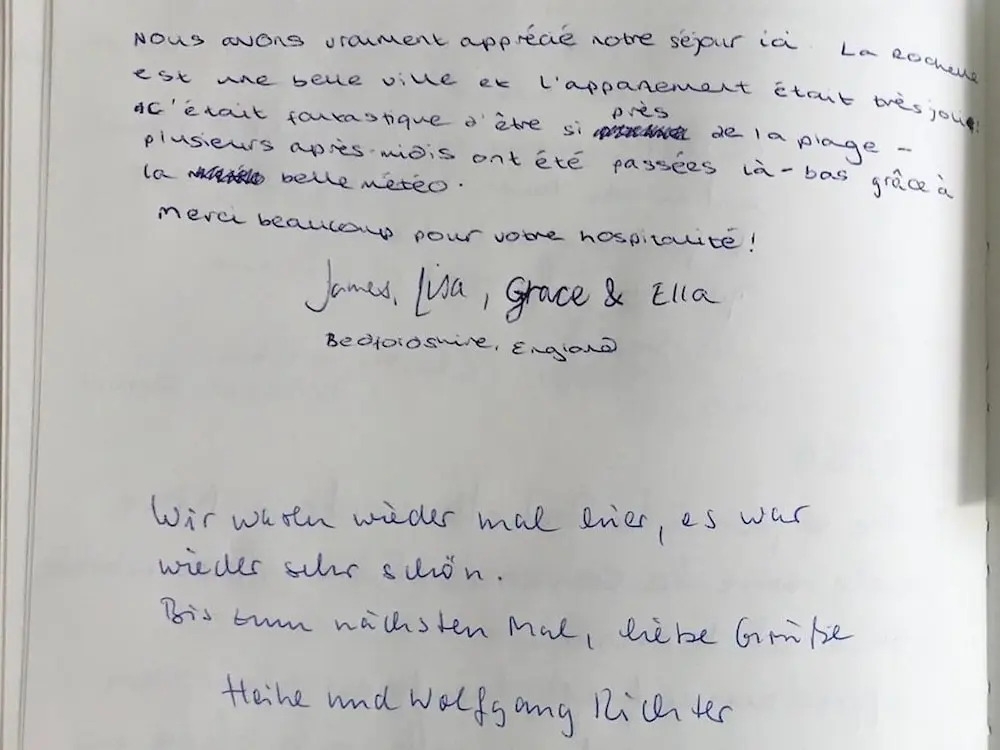 Nous avons vraiment apprécié notre séjour ici La Rochelle
est une belle ville et l'appartement était très joli!
C'était fantastique d'être si près de la plage –
plusieurs après-midis ont été passées là-bas grâce à
la belle météo.
Merci beaucoup pour votre hospitalité!
James, Lisa, Grace & Ella
Bedfordshire, England
Wir waren wieder mal hier, es war
wieder sehr schön.
Bis zum nächsten Mal, liebe Grüße
Heike und Wolfgang Richter